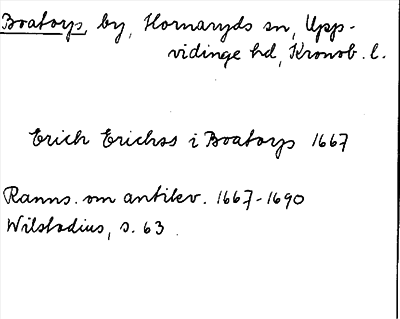 Boatorp, by, Hornaryds sn, Upp-
vidinge hd, Kronob. l.
Erich Erichss i Boatorp 1667
Ranns. om antikv. 1667-1690
Wilstadius, s. 63.